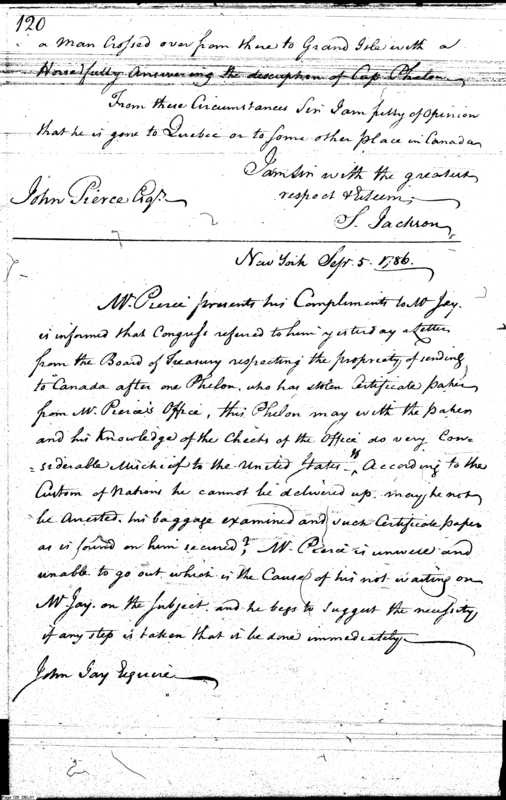 120
a Man Crossed over from there to Grand Isle with a
Horse fully Answering the description of Cap. Phelon
From these Circumstances Sir I am fully of Opinion
that he is gone to Quebec or to some other place in Canada
I am Sir with the greatest
respect & Esteem,
John Pierce Esqr.
S. Jackson,
New York Sepr. 5. 1786.
Mr. Pierce presents his Compliments to Mr Jay.
is informed that Congress refered to him yesterday a Letter
from the Board of Treasury respecting the propriety of sending
to Canada after one Phelon, who has stolen Certificate paper
from Mr. Pierce's Office, this Phelon may with the paper
and his Knowledge of the Checks of the Office do very Con-
-siderable Mischief to the United States - According to the
Custom of Nations he cannot be delivered up. may he not
be Arrested. his baggage examined and such Certificate paper
as is found on him secured? Mr. Pierce is unwell and
unable to go out which is the Cause of his not waiting on
Mr Jay. on the subject, and he begs to suggest the necessity,
if any step is taken that it be done immediately
John Jay Esquire